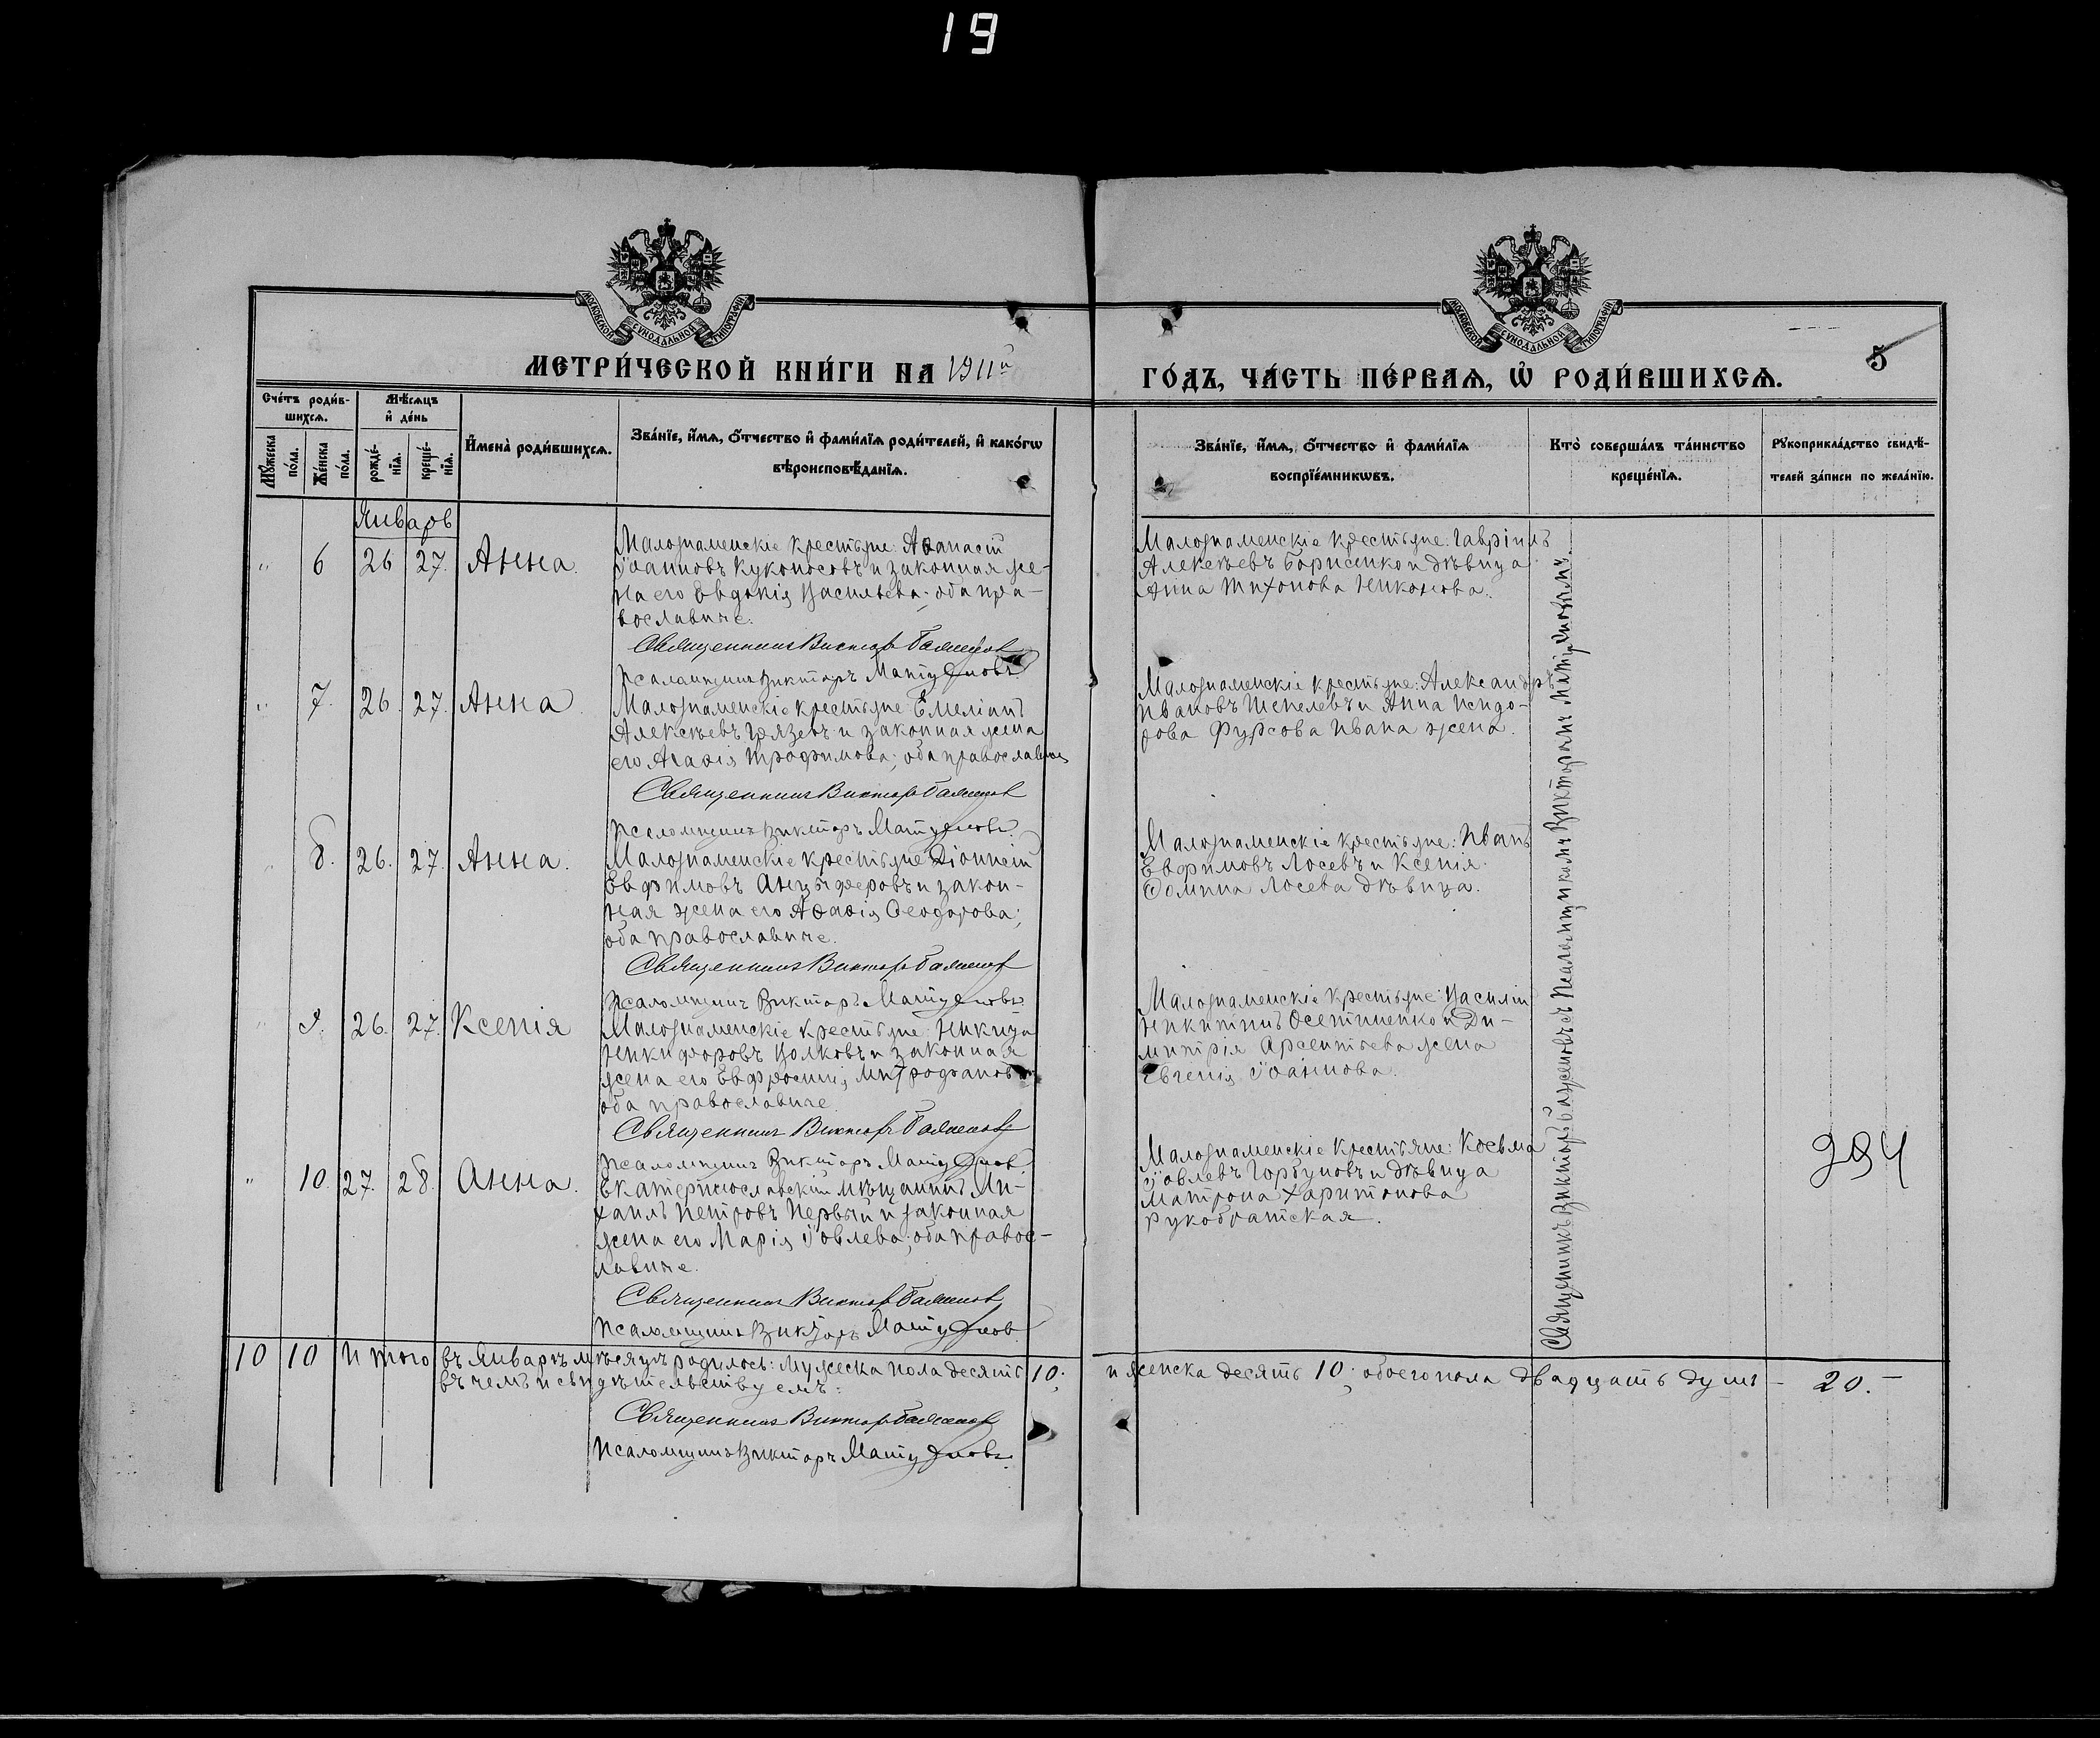 19
МОСКОВСКОЙ СѴНОДАЛЬНОЙ ТИПОГРАФІИ
МОСКОВСКОЙ СѴНОДАЛЬНОЙ ТИПОГРАФІИ
МЕТРИ́ЧЕСКОЙ КНИ́ГИ НА 1911й
ГО́ДЪ, ЧА́СТЬ ПЕ́РВАѦ, Ѡ҆ РОДИ́ВШИХСѦ.
5
Сче́тъ роди́в-
шихсѧ.
Мѣ́сѧцъ
и҆ де́нь
Мꙋ́жеска
по́ла.
Же́нска
по́ла.
рожде́-
нїѧ.
креще́-
нїѧ.
И҆мена̀ роди́вшихсѧ.
Зва́нїе, и҆́мѧ, ѻ҆́тчество и҆ фами́лїѧ роди́телей, и҆ како́гѡ
вѣроисповѣ́данїѧ.
Зва́нїе, и҆́мѧ, ѻ҆́тчество и҆ фами́лїѧ
воспрїе́мникѡвъ.
Кто̀ соверша́лъ та́инство
креще́нїѧ.
Рꙋкоприкла́дство свидѣ́-
телей за́писи по жела́нїю.
Январь
" 6 26 27. Анна.
Малознаменскіе крестьяне: Аѳанасій
Іоанновъ Куконосовъ и законная же-
на его Евдокія Васильева; оба пра-
вославные.
Священникъ Викторъ Баженов
Псаломщикъ Викторъ
Малознаменскіе крестьяне: Гавріилъ
Алексѣевъ Борисенко и дѣвица
Анна Тихонова Никонова.
" 7. 26. 27. Анна
Малознаменскіе крестьяне: Емеліанъ
Алексѣевъ Грязевъ и законная жена
его Агаѳія Трофимова; оба православные
Священникъ Викторъ Баженов
Псаломщикъ Викторъ
Малознаменскіе крестьяне: Александръ
Ивановъ Шепелевъ и Анна Исидо-
рова Фурсова Ивана жена.
" 8. 26. 27. Анна.
Малознаменскіе крестьяне: Діонисій
Евфимовъ Анцыферовъ и закон-
ная жена его Агаѳія Ѳеодорова;
оба православные.
Священникъ Викторъ Баженов
Псаломщикъ Викторъ
Малознаменскіе крестьяне: Иванъ
Евфимовъ Лосевъ и Ксенія
Ѳомина Лосева дѣвица.
" 9. 26. 27. Ксенія
Малознаменскіе крестьяне: Никита
Никифоровъ Волковъ и законная
жена его Евфросинія Митрофанова
оба православные.
Священникъ Викторъ Баженов
Псаломщикъ Викторъ
Малознаменскіе крестьяне: Василій
Никитинъ Осетиненко и Ди-
митрія Арсентьева жена
Евгенія Іоаннова.
" 10. 27. 28. Анна.
Екатеринославскій мѣщанинъ Ми-
хаилъ Петровъ Первый и законная
жена его Марія Іовлева; оба правос-
лавные.
Священникъ Викторъ Баженов
Псаломщикъ Викторъ
Малознаменскіе крестьяне: Косьма
Іовлевъ Горбуновъ и дѣвица
Матрона Харитонова
Рукобратская.
Священникъ Викторъ Баженовъ съ Псаломщикомъ Викторомъ
284
10 10 Итого въ Январѣ мѣсяцѣ родилось: мужеска пола десять 10; и женска десять 10; обоего пола двадцать душъ – 20. –
въ чемъ и свидѣтельствуемъ:
Священникъ Викторъ Баженов
Псаломщикъ Викторъ